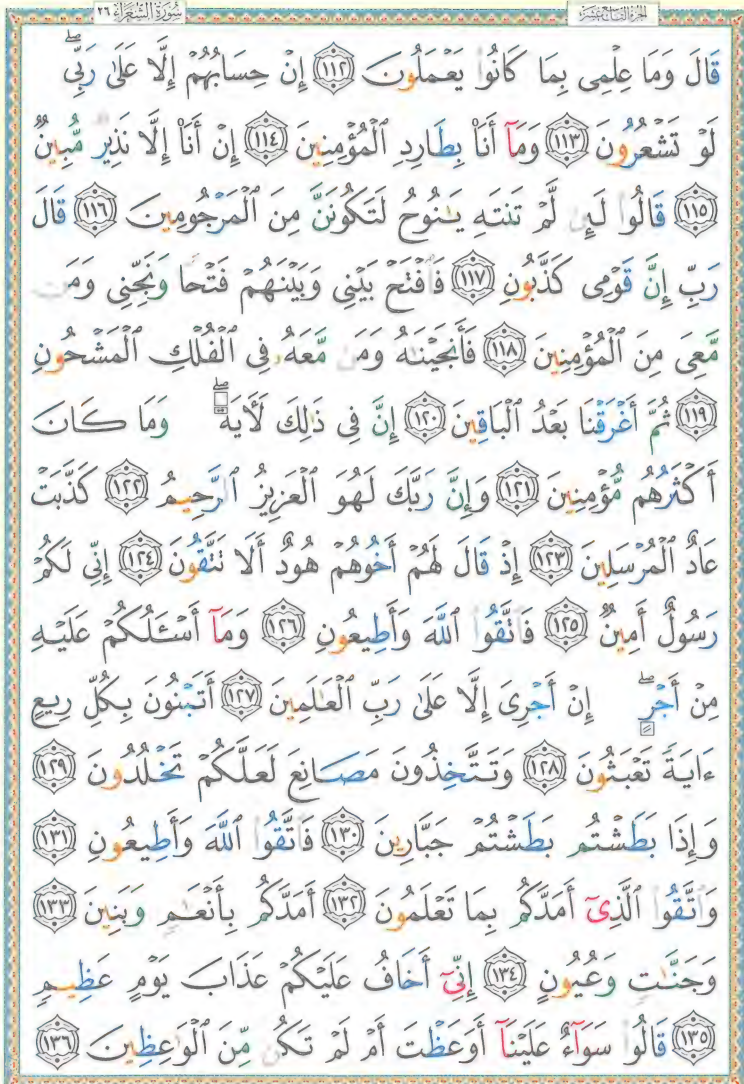 سُورَةُ الشُّعَرَاءِ ٢٦ الجزء التاسع عشر
قَالَ وَمَا عِلْمِى بِمَا كَانُوا۟ يَعْمَلُونَ ﴿١١٢﴾ إِنْ حِسَابُهُمْ إِلَّا عَلَىٰ رَبِّى ۖ
لَوْ تَشْعُرُونَ ﴿١١٣﴾ وَمَآ أَنَا۠ بِطَارِدِ ٱلْمُؤْمِنِينَ ﴿١١٤﴾ إِنْ أَنَا۠ إِلَّا نَذِيرٌ مُّبِينٌ
﴿١١٥﴾ قَالُوا۟ لَئِن لَّمْ تَنتَهِ يَـٰنُوحُ لَتَكُونَنَّ مِنَ ٱلْمَرْجُومِينَ ﴿١١٦﴾ قَالَ
رَبِّ إِنَّ قَوْمِى كَذَّبُونِ ﴿١١٧﴾ فَٱفْتَحْ بَيْنِى وَبَيْنَهُمْ فَتْحًا وَنَجِّنِى وَمَن
مَّعِىَ مِنَ ٱلْمُؤْمِنِينَ ﴿١١٨﴾ فَأَنجَيْنَـٰهُ وَمَن مَّعَهُۥ فِى ٱلْفُلْكِ ٱلْمَشْحُونِ
﴿١١٩﴾ ثُمَّ أَغْرَقْنَا بَعْدُ ٱلْبَاقِينَ ﴿١٢٠﴾ إِنَّ فِى ذَٰلِكَ لَـَٔايَةً ۖ وَمَا كَانَ
أَكْثَرُهُم مُّؤْمِنِينَ ﴿١٢١﴾ وَإِنَّ رَبَّكَ لَهُوَ ٱلْعَزِيزُ ٱلرَّحِيمُ ﴿١٢٢﴾ كَذَّبَتْ
عَادٌ ٱلْمُرْسَلِينَ ﴿١٢٣﴾ إِذْ قَالَ لَهُمْ أَخُوهُمْ هُودٌ أَلَا تَتَّقُونَ ﴿١٢٤﴾ إِنِّى لَكُمْ
رَسُولٌ أَمِينٌ ﴿١٢٥﴾ فَٱتَّقُوا۟ ٱللَّهَ وَأَطِيعُونِ ﴿١٢٦﴾ وَمَآ أَسْـَٔلُكُمْ عَلَيْهِ
مِنْ أَجْرٍ ۖ إِنْ أَجْرِىَ إِلَّا عَلَىٰ رَبِّ ٱلْعَـٰلَمِينَ ﴿١٢٧﴾ أَتَبْنُونَ بِكُلِّ رِيعٍ
ءَايَةً تَعْبَثُونَ ﴿١٢٨﴾ وَتَتَّخِذُونَ مَصَانِعَ لَعَلَّكُمْ تَخْلُدُونَ ﴿١٢٩﴾
وَإِذَا بَطَشْتُم بَطَشْتُمْ جَبَّارِينَ ﴿١٣٠﴾ فَٱتَّقُوا۟ ٱللَّهَ وَأَطِيعُونِ ﴿١٣١﴾
وَٱتَّقُوا۟ ٱلَّذِىٓ أَمَدَّكُم بِمَا تَعْلَمُونَ ﴿١٣٢﴾ أَمَدَّكُم بِأَنْعَـٰمٍ وَبَنِينَ ﴿١٣٣﴾
وَجَنَّـٰتٍ وَعُيُونٍ ﴿١٣٤﴾ إِنِّىٓ أَخَافُ عَلَيْكُمْ عَذَابَ يَوْمٍ عَظِيمٍ
﴿١٣٥﴾ قَالُوا۟ سَوَآءٌ عَلَيْنَآ أَوَعَظْتَ أَمْ لَمْ تَكُن مِّنَ ٱلْوَٰعِظِينَ ﴿١٣٦﴾